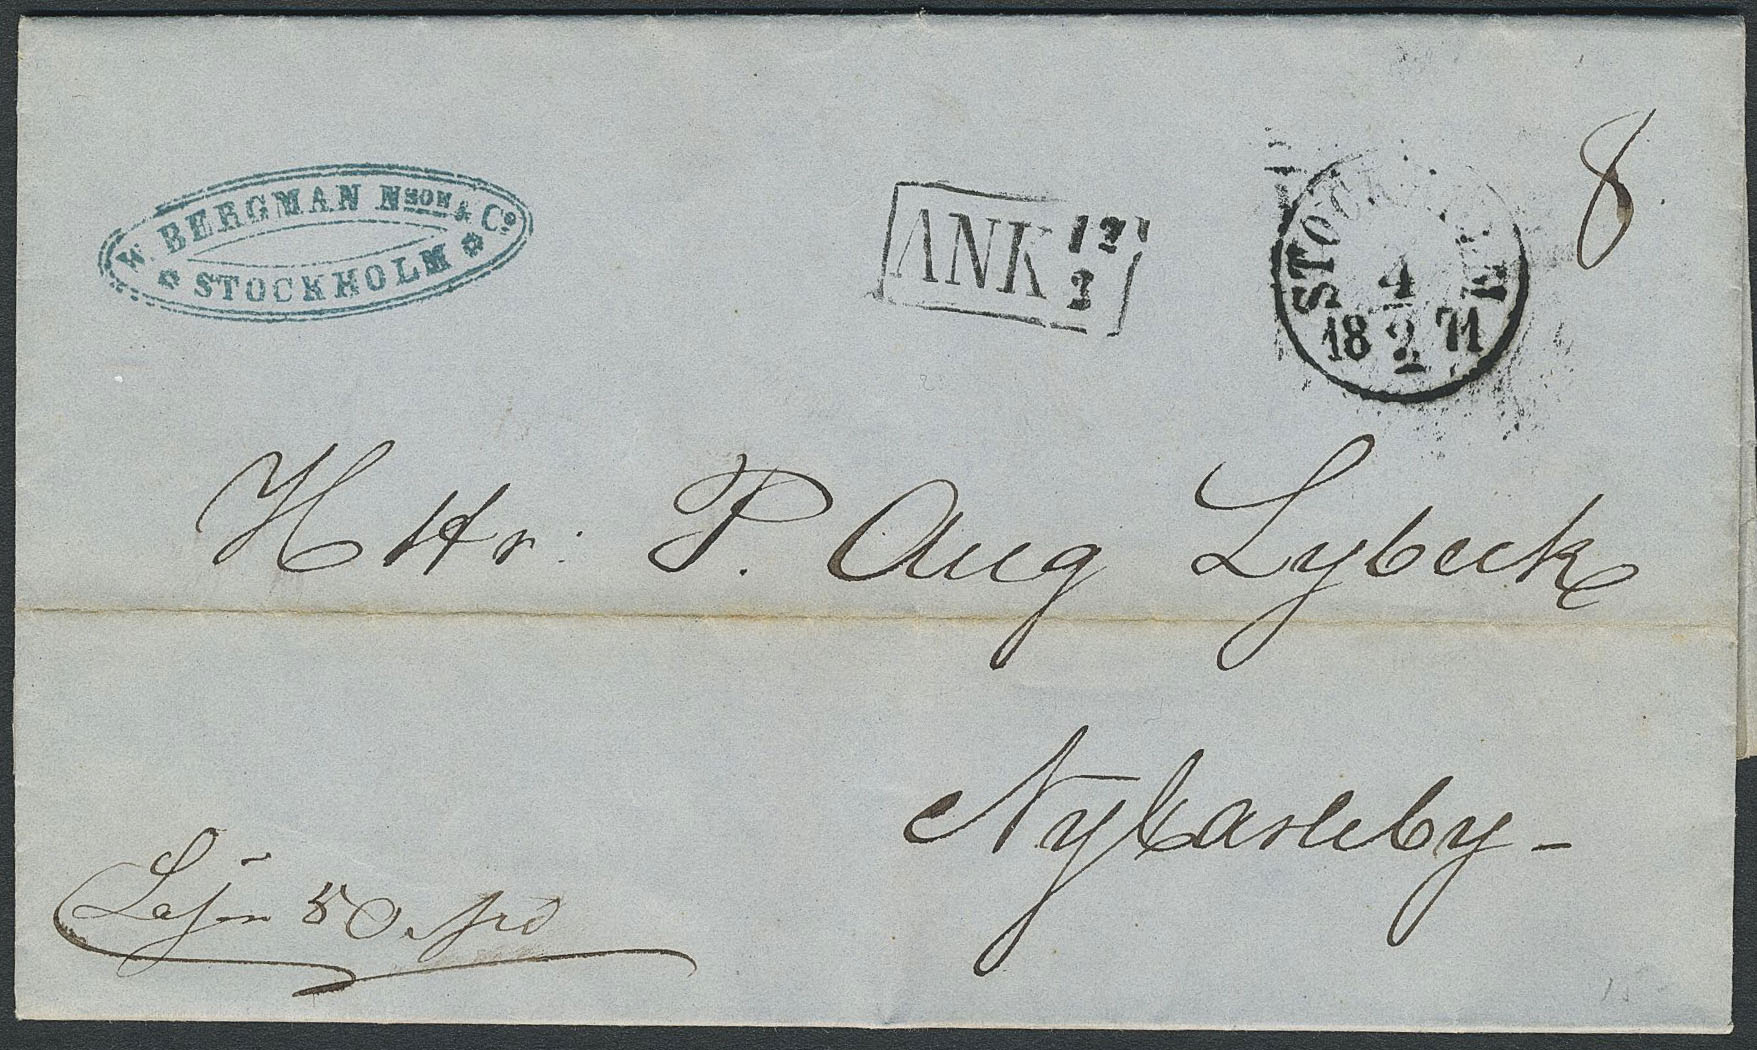 W. BERGMAN NSON & Co.
STOCKHOLM
ANK 12
2
STOCKHOLM
4
18 2 71
8
H Hr. P. Aug Lybeck
Nykarleby -
50